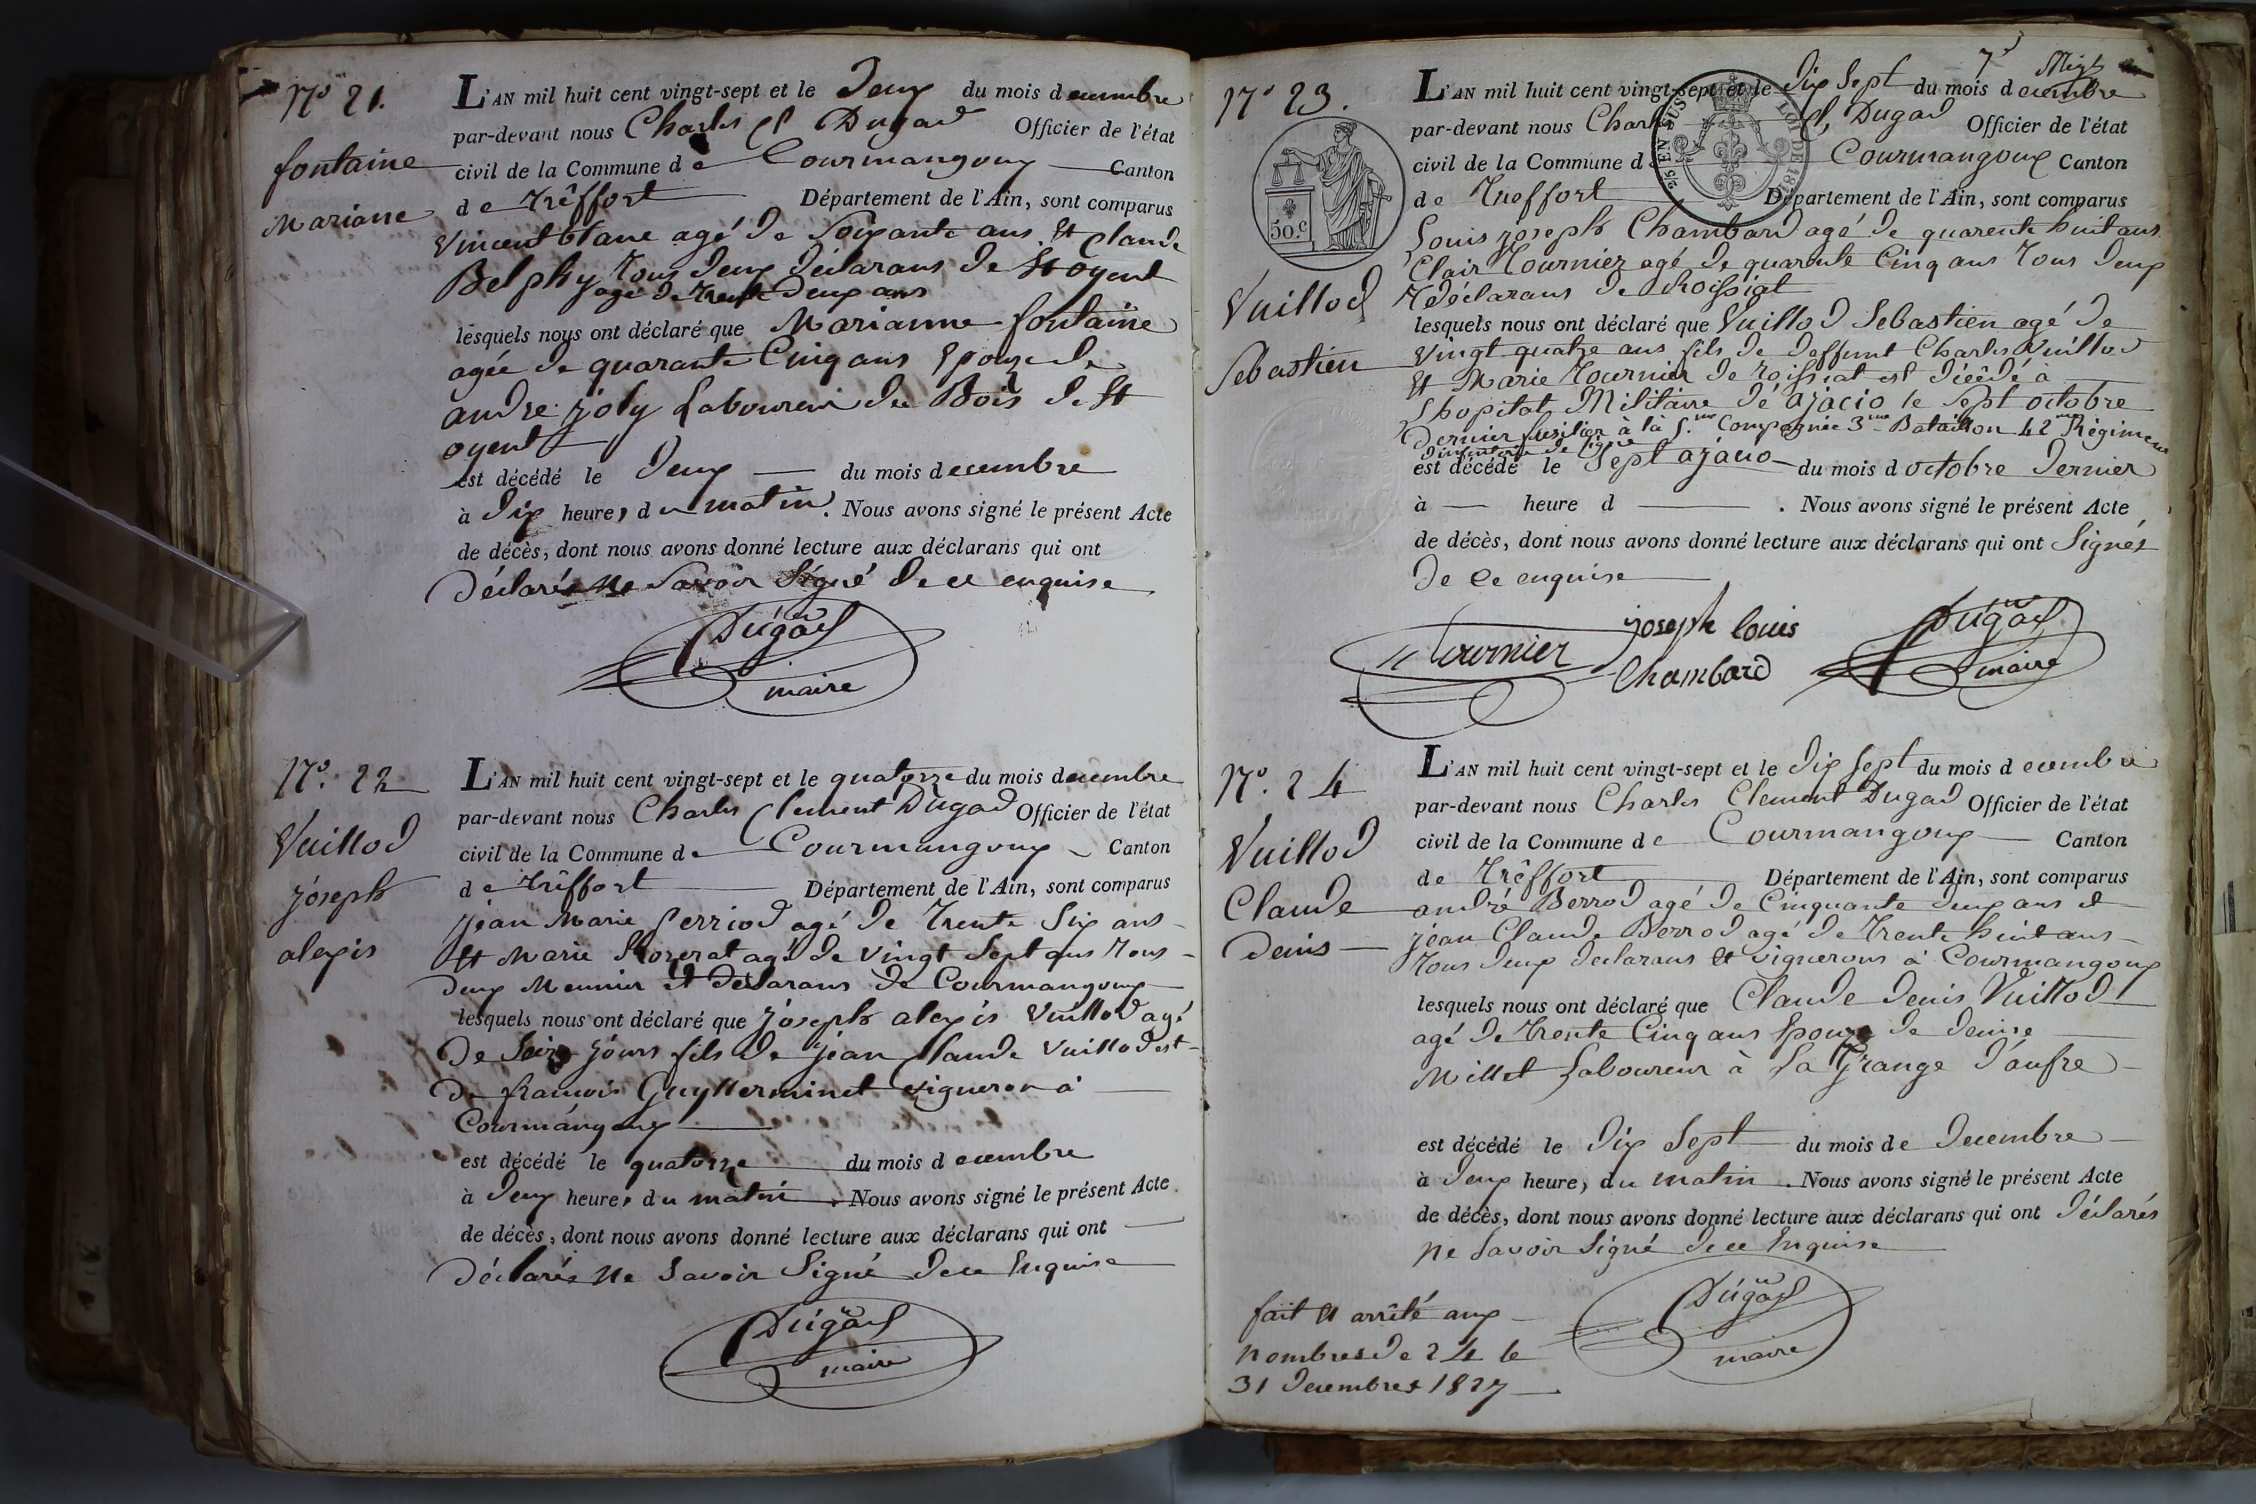 N° 21.
fontaine
Mariane
L'AN mil huit cent vingt-sept et le Deux du mois decembre
par-devant nous Charles Cl Dugad Officier de l'état
civil de la Commune de Courmangoux Canton
de Trêffort Département de l'Ain, sont comparus
Vincent blanc agé de Soixante ans Et Claude
Belphy Tous deux déclarans de St oyent
agé de trente deux ans
lesquels nous ont déclaré que Marianne fontaine
agée de quarante Cinq ans Epouze de
andre joly Laboureur du Bois de St
oyent
est décédé le Deux du mois decembre
à Dix heures du matin. Nous avons signé le présent Acte
de décès, dont nous avons donné lecture aux déclarans qui ont
Déclarés ne Savoir Signé de ce enquise
Dugad
maire
N°. 22
Vuillod
jóseph
alexis
L'AN mil huit cent vingt-sept et le quatorze du mois decembre
par-devant nous Charles Clement Dugad Officier de l'état
civil de la Commune de Courmangoux Canton
de trêffort Département de l'Ain, sont comparus
jean Marie Perriod agé de Trente Six ans
Et Marie agé de Vingt Sept ans Tous
deux Meunier et déclarans de Courmangoux
lesquels nous ont déclaré que jóseph alexis Vuillod agé
de jours fils de jean Claude Vuillod et
de francois Guyllerminet vigneron à
Courmangoux
est décédé le quatorze du mois decembre
à Deux heures du matin. Nous avons signé le présent Acte
de décès, dont nous avons donné lecture aux déclarans qui ont
Déclarés Ne Savoir Signé de ce Enquise
Dugad
maire
N° 23.
50.c
Vuillod
Sebastien
2/5 EN SUS LOI DE 181
L'AN mil huit cent vingt-sept et le Dix Sept du mois decembre
par-devant nous Charles Cl, Dugad Officier de l'état
civil de la Commune de Courmangoux Canton
de Treffort Département de l'Ain, sont comparus
Louis joseph Chambard agé de quarente huit ans
Clair Tournier agé de quarente Cinq ans Tous deux
déclarans de Roissiat
lesquels nous ont déclaré que Vuillod Sebastien agé de
Vingt quatre ans fils de deffunt Charles Vuillod
Et Marie Tournier de roissiat est décédé à
Lhopital Militaire de ajacio le Sept octobre
Dernier fusilier à la 5.me Compagnie 3me Bataillon 42me Régiment
D'infanterie de ligne
est décédé le Sept ajacio du mois d octobre Dernier
à heure d . Nous avons signé le présent Acte
de décès, dont nous avons donné lecture aux déclarans qui ont Signés
De Ce enquise
Tournier
joseph louis
Chambard
Dugad
maire
N°. 24
Vuillod
Claude
Denis
L'AN mil huit cent vingt-sept et le Dix Sept du mois decembre
par-devant nous Charles Clement Dugad Officier de l'état
civil de la Commune de Courmangoux Canton
de Trêffort Département de l'Ain, sont comparus
andré Berrod agé de Cinquante deux ans et
jean Claude Berrod agé de Trente huit ans
Tous deux declarans et vignerons à Courmangoux
lesquels nous ont déclaré que Claude denis Vuillod
agé de Trente Cinq ans Epoux de denise
Millet Laboureur à La Grange
est décédé le Dix Sept du mois de Decembre
à Deux heures du matin. Nous avons signé le présent Acte
de décès, dont nous avons donné lecture aux déclarans qui ont Déclarés
Ne Savoir Signé de ce Enquise
Dugad
maire
fait et arrêté aux
nombres de 24 le
31 Decembres 1827